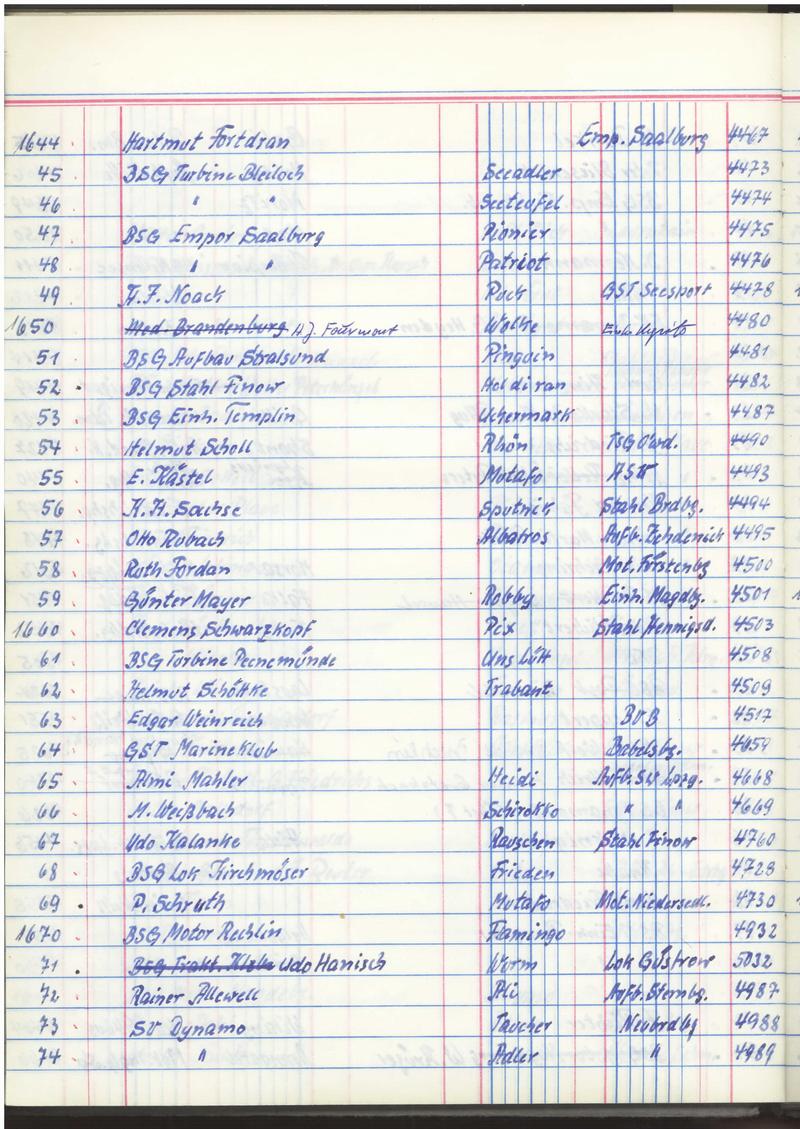 1644 Hartmut Fortdran Emp. Saalburg 4467
45 BSG Turbine Bleiloch Seeadler 4473
46 " " Seeteufel 4474
47 BSG Empor Saalburg Pionier 4475
48 " " Patriot 4476
49 H.F. Noack Puck GST Seesport 4478
1650 Med. Brandenburg H.J. Wolke 4480
51 BSG Aufbau Stralsund Pinguin 4481
52 BSG Stahl Finow Holdiran 4482
53 BSG Einh. Templin Uckermark 4487
54 Helmut Scholl Rhön TSG O'wd. 4490
55 E. Kästel Mutafo ASW 4493
56 K.H. Sachse Sputnik Stahl Brdbg. 4494
57 Otto Rubach Albatros Aufb. Zehdenick 4495
58 Ruth Jordan Mot. Fürstenbg 4500
59 Günter Mayer Robby Einh. Magdbg. 4501
1660 Clemens Schwarzkopf Pix Stahl Hennigsd. 4503
61 BSG Turbine Peenemünde Uns Lütt 4508
62 Helmut Schöttke Trabant 4509
63 Edgar Weinreich BVB 4517
64 GST Marineklub Babelsbg. 4659
65 Almi Mahler Heidi Aufb. SW Lpzg. 4668
66 M. Weißbach Schirokko " " 4669
67 Udo Kalanke Rauschen Stahl Finow 4760
68 BSG Lok Kirchmöser Frieden 4728
69 P. Schruth Mutafo Mot. Niedersedl. 4730
1670 BSG Motor Rechlin Flamingo 4932
71 BSG Trakt. Udo Hanisch Wurm Lok Güstrow 5032
72 Rainer Allewell Ali Aufb. Sternbg. 4987
73 SV Dynamo Taucher Neubrdbg 4988
74 " Adler " 4989